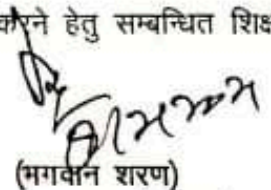 करने हेतु सम्बन्धित शिक्ष
(भगवान शरण)